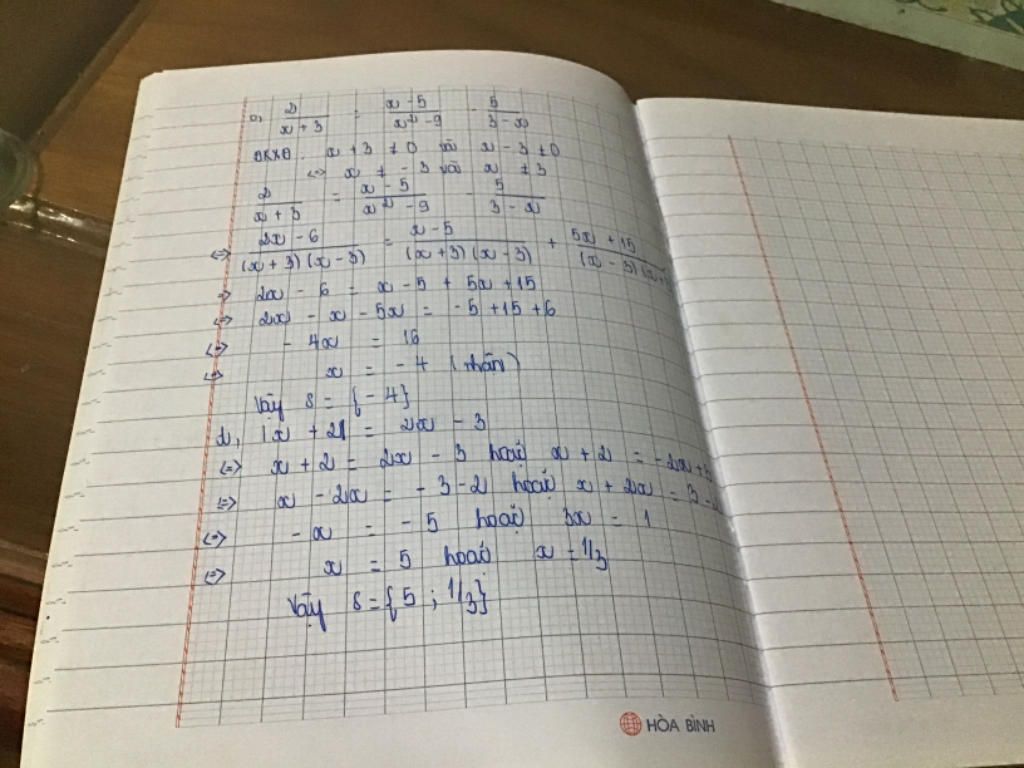 c, 2/(x + 3) = (x - 5)/(x² - 9) - 5/(3 - x)
ĐKXĐ: x + 3 ≠ 0 và x - 3 ≠ 0
<=> x ≠ - 3 và x ≠ 3
2/(x + 3) = (x - 5)/(x² - 9) - 5/(3 - x)
<=> (2x - 6)/((x + 3)(x - 3)) = (x - 5)/((x + 3)(x - 3)) + (5x + 15)/((x - 3)(x+
=> 2x - 6 = x - 5 + 5x + 15
<=> 2x - x - 5x = - 5 + 15 + 6
<=> - 4x = 16
<=> x = - 4 (nhận)
Vậy S = {- 4}
d, |x + 2| = 2x - 3
<=> x + 2 = 2x - 3 hoặc x + 2 = -2x + 3
<=> x - 2x = - 3 - 2 hoặc x + 2x = 3 - 2
<=> - x = - 5 hoặc 3x = 1
<=> x = 5 hoặc x = 1/3
Vậy S = {5 ; 1/3}
HÒA BÌNH